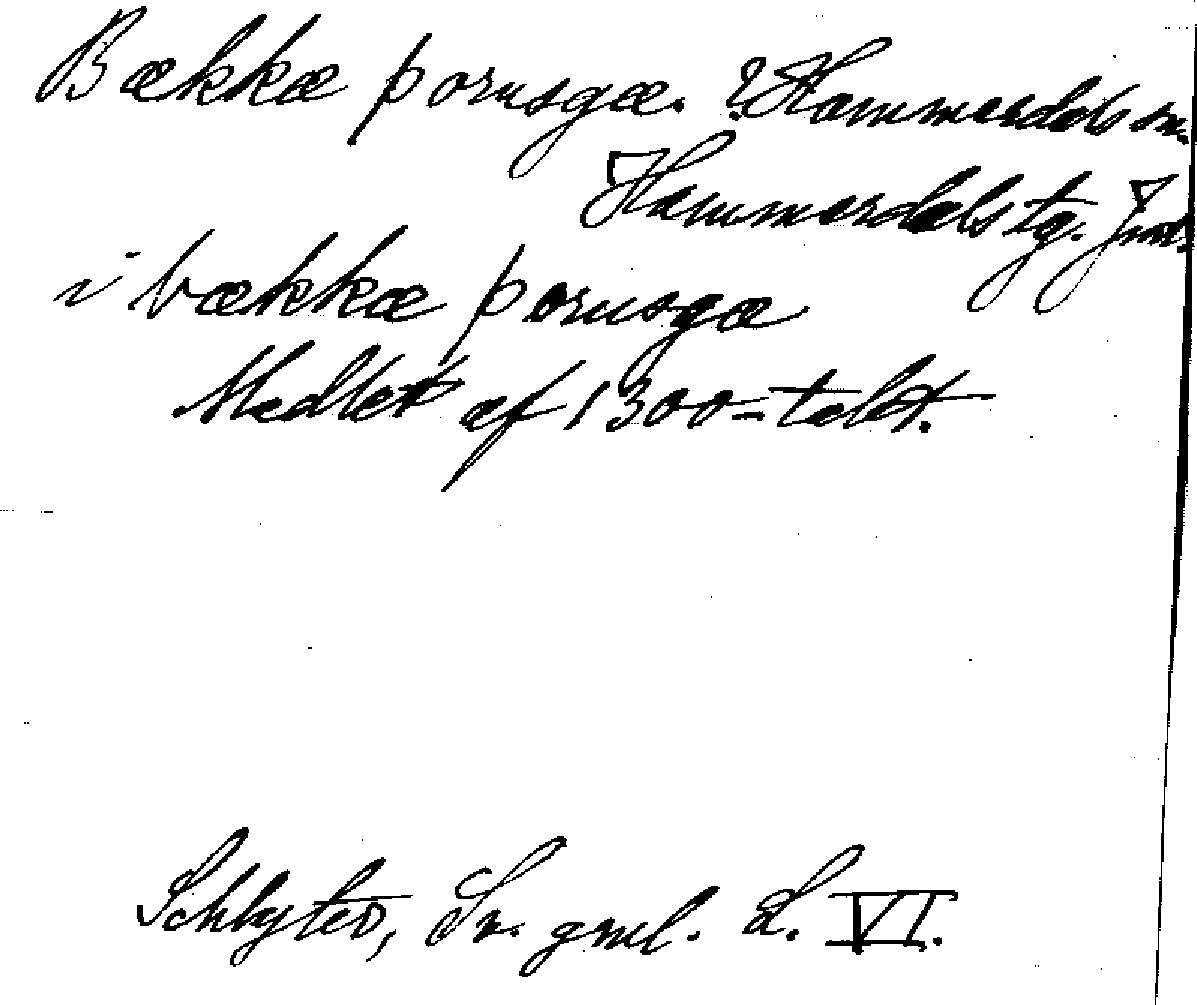 Bækkæ þorusgæ. ? Hammerdals sn.
Hammerdals tg. Jmt.
i bækkæ þorusgæ
Medlet af 1300-talet.
Schlyter, Sv. gml. L. VI.